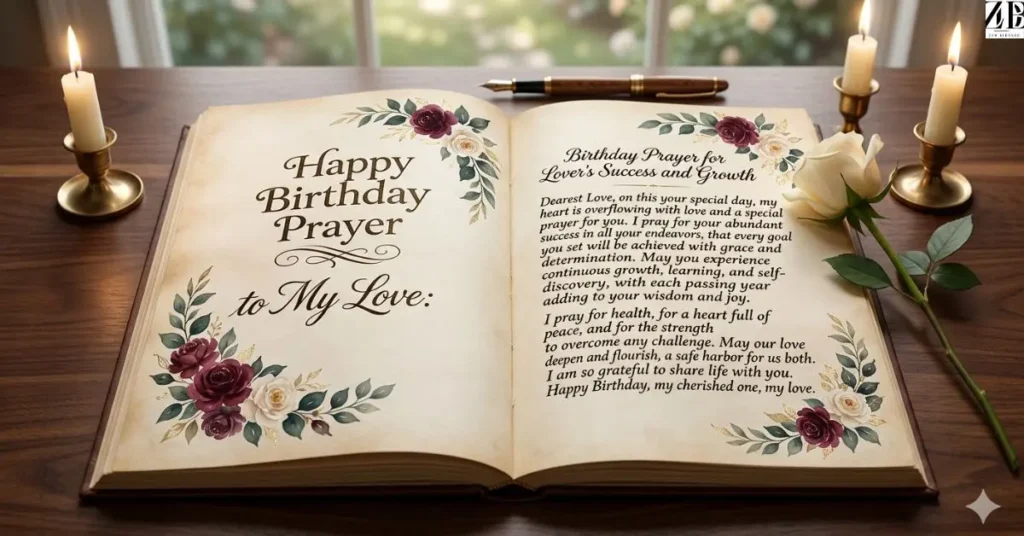 Happy
Birthday
Prayer
to My Love:
Birthday Prayer for
Lover's Success and Growth
Dearest Love, on this your special day, my
heart is overflowing with love and a special
prayer for you. I pray for your abundant
success in all your endeavors, that every goal
you set will be achieved with grace and
determination. May you experience
continuous growth, learning, and self-
discovery, with each passing year
adding to your wisdom and joy.
I pray for health, for a heart full of
peace, and for the strength
to overcome any challenge. May our love
deepen and flourish, a safe harbor for us both.
I am so grateful to share life with you.
Happy Birthday, my cherished one, my love.